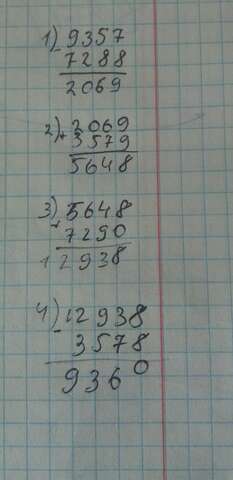 1) - 9357
7288
2069
2) + 2069
3579
5648
3) + 5648
7290
12938
4) - 12938
3578
9360